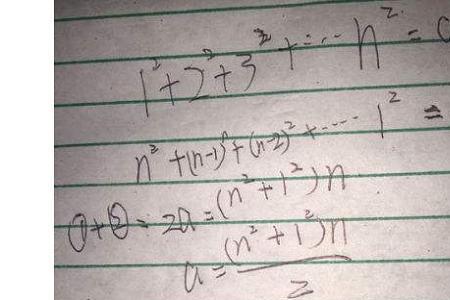 1²+2²+3²+……n²=a
n²+(n-1)²+(n-2)²+……1²=
①+②=2a=(n²+1²)n
a=(n²+1²)n/2